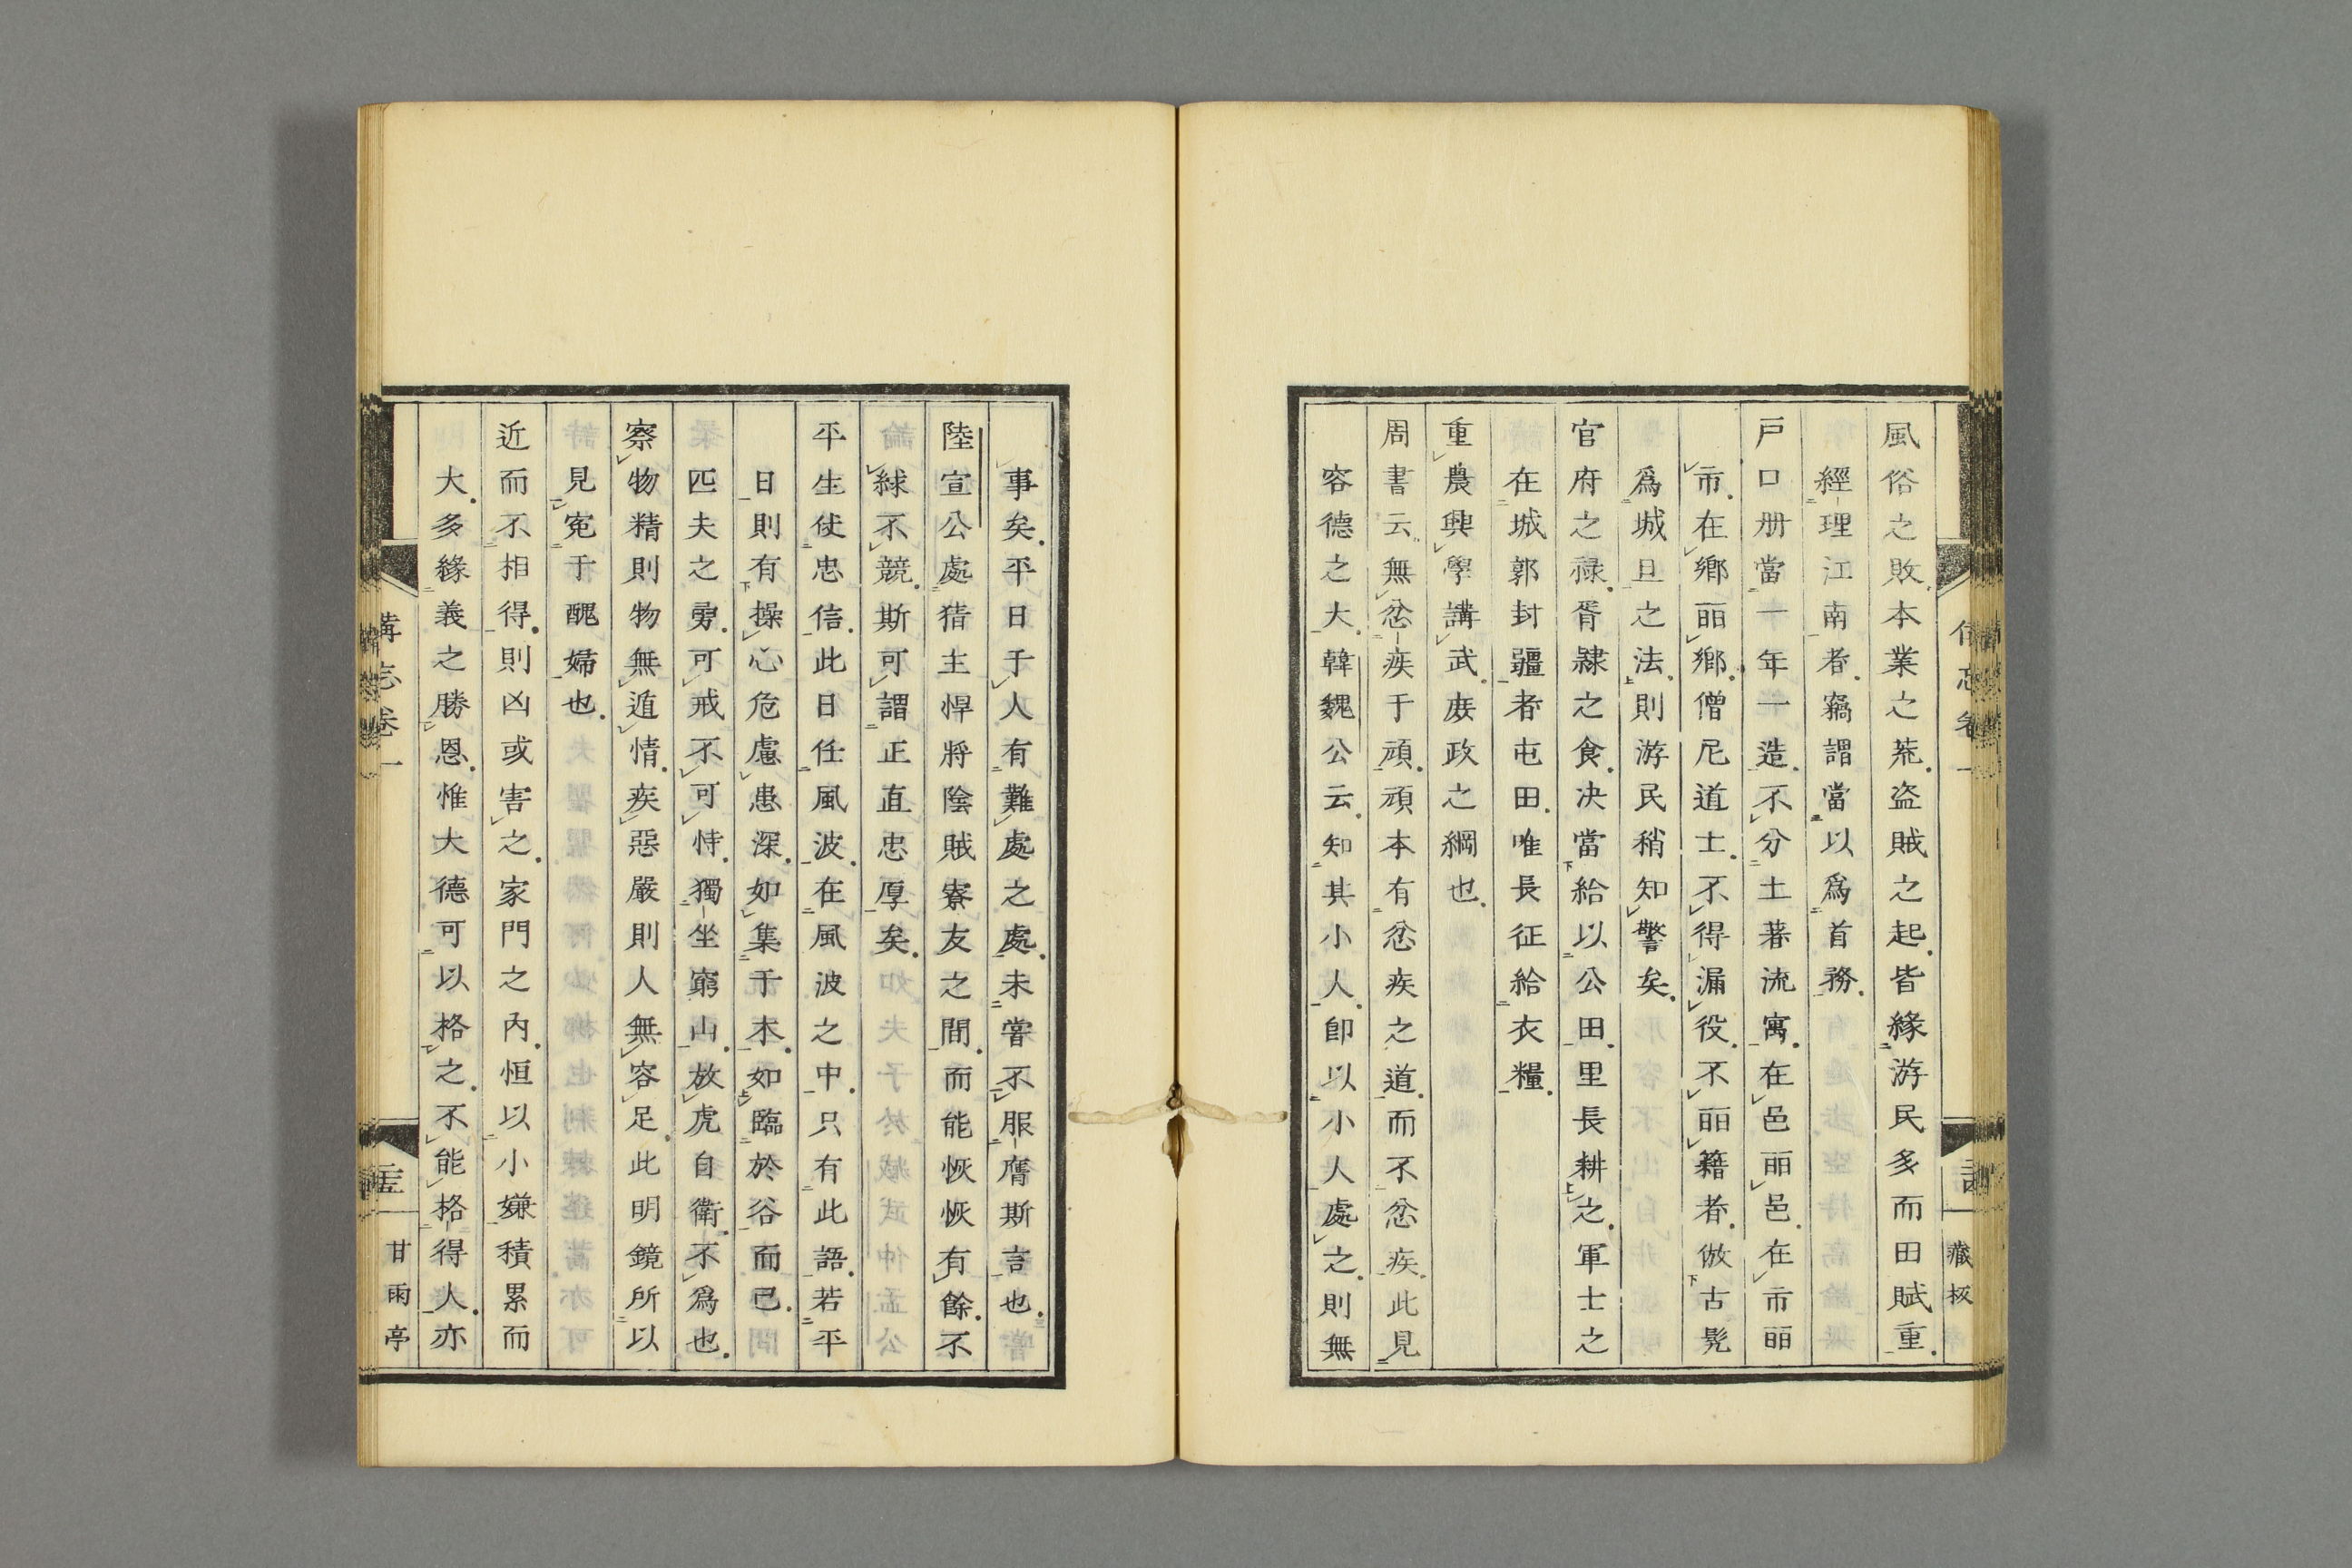 風俗之敗本業之荒盗賊之起皆緣游民多而田賦重
經理江南者竊謂當以爲首務
戸口册當十年一造不分土著流寓在邑丽邑在市丽
市在鄉丽鄉僧尼道士不得漏役不丽籍者倣古髡
爲城旦之法則游民稍知警矣
官府之禄胥隸之食决當給以公田里長耕之軍士之
在城郭封疆者屯田唯長征給衣糧
重農興學講武庶政之綱也
周書云無忿疾于頑頑本有忿疾之道而不忿疾此見
容德之大韓魏公云知其小人卽以小人處之則無
事矣平日于人有難處之處未嘗不服膺斯言也
陸宣公處猜主悍將陰賊寮友之間而能恢恢有餘不
絿不競斯可謂正直忠厚矣
平生仗忠信此日任風波在風波之中只有此語若平
日則有操心危慮患深如集于木如臨於谷而已
匹夫之勇可戒不可恃獨坐窮山放虎自衛不爲也
察物精則物無遁情疾惡嚴則人無容足此明鏡所以
見寃于醜婦也
近而不相得則凶或害之家門之內恒以小嫌積累而
大多緣義之勝恩惟大德可以格之不能格得人亦
備忘卷一
甘雨亭
藏板